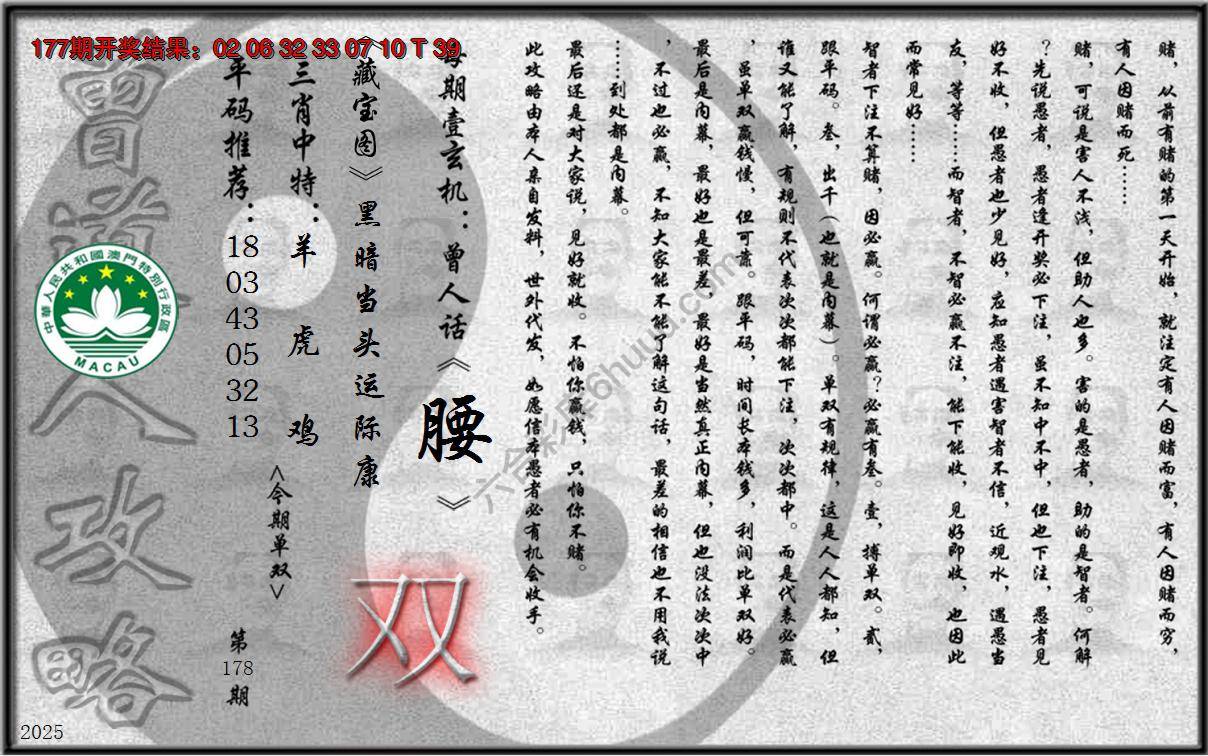 177期开奖结果：02 06 32 33 07 10 T 39
赌，从前有赌的第一天开始，就注定有人因赌而富，有人因赌而穷，
有人因赌而死……
赌，可说是害人不浅，但助人也多。害的是愚者，助的是智者。何解
？先说愚者，愚者逢开奖必下注，虽不知中不中，但也下注，愚者见
好不收，但愚者也少见好，应知愚者遇害智者不信，近观水，遇愚当
友，等等……而智者，不智必赢不注，能下能收，见好即收，也因此
而常见好……
智者下注不算赌，因必赢。何谓必赢？必赢有叁。壹，搏单双。贰，
跟平码。叁，出千（也就是内幕）。单双有规律，这是人人都知，但
谁又能了解，有规则不代表次次都能下注，次次都中。而是代表必赢
，虽单双赢钱慢，但可靠。跟平码，时间长本钱多，利润比单双好。
最后是内幕，最好也是最差，最好是当然真正内幕，但也没法次次中
，不过也必赢，不知大家能不能了解这句话，最差的相信也不用我说
……到处都是内幕。
最后还是对大家说，见好就收。不怕你赢钱，只怕你不赌。
此攻略由本人亲自发料，世外代发，如愿信本愚者必有机会收手。
每期壹玄机：曾人话《腰》
《藏宝图》黑暗当头运际康
三肖中特：羊 虎 鸡
平码推荐：18 03 43 05 32 13
<今期单双>
双
第178期
曾道人攻略
中華人民共和國澳門特別行政區
MACAU
六合彩库6huuu.com
2025